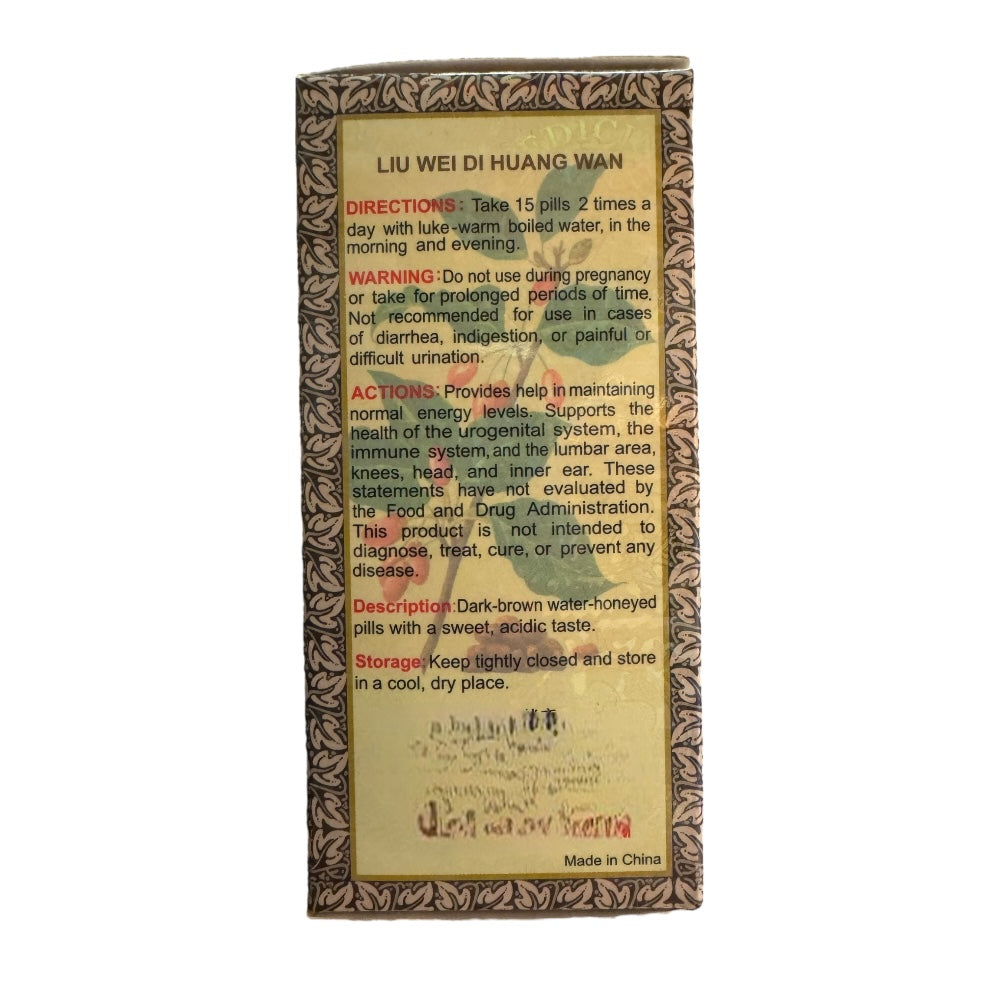 LIU WEI DI HUANG WAN
DIRECTIONS: Take 15 pills 2 times a
day with luke-warm boiled water, in the
morning and evening.
WARNING: Do not use during pregnancy
or take for prolonged periods of time.
Not recommended for use in cases
of diarrhea, indigestion, or painful or
difficult urination.
ACTIONS: Provides help in maintaining
normal energy levels. Supports the
health of the urogenital system, the
immune system, and the lumbar area,
knees, head, and inner ear. These
statements have not evaluated by
the Food and Drug Administration.
This product is not intended to
diagnose, treat, cure, or prevent any
disease.
Description: Dark-brown water-honeyed
pills with a sweet, acidic taste.
Storage: Keep tightly closed and store
in a cool, dry place.
Made in China